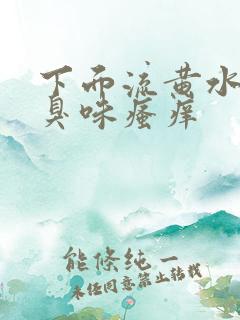 下面流黄水
臭味瘙痒
能修纯一
未经同意禁止转载